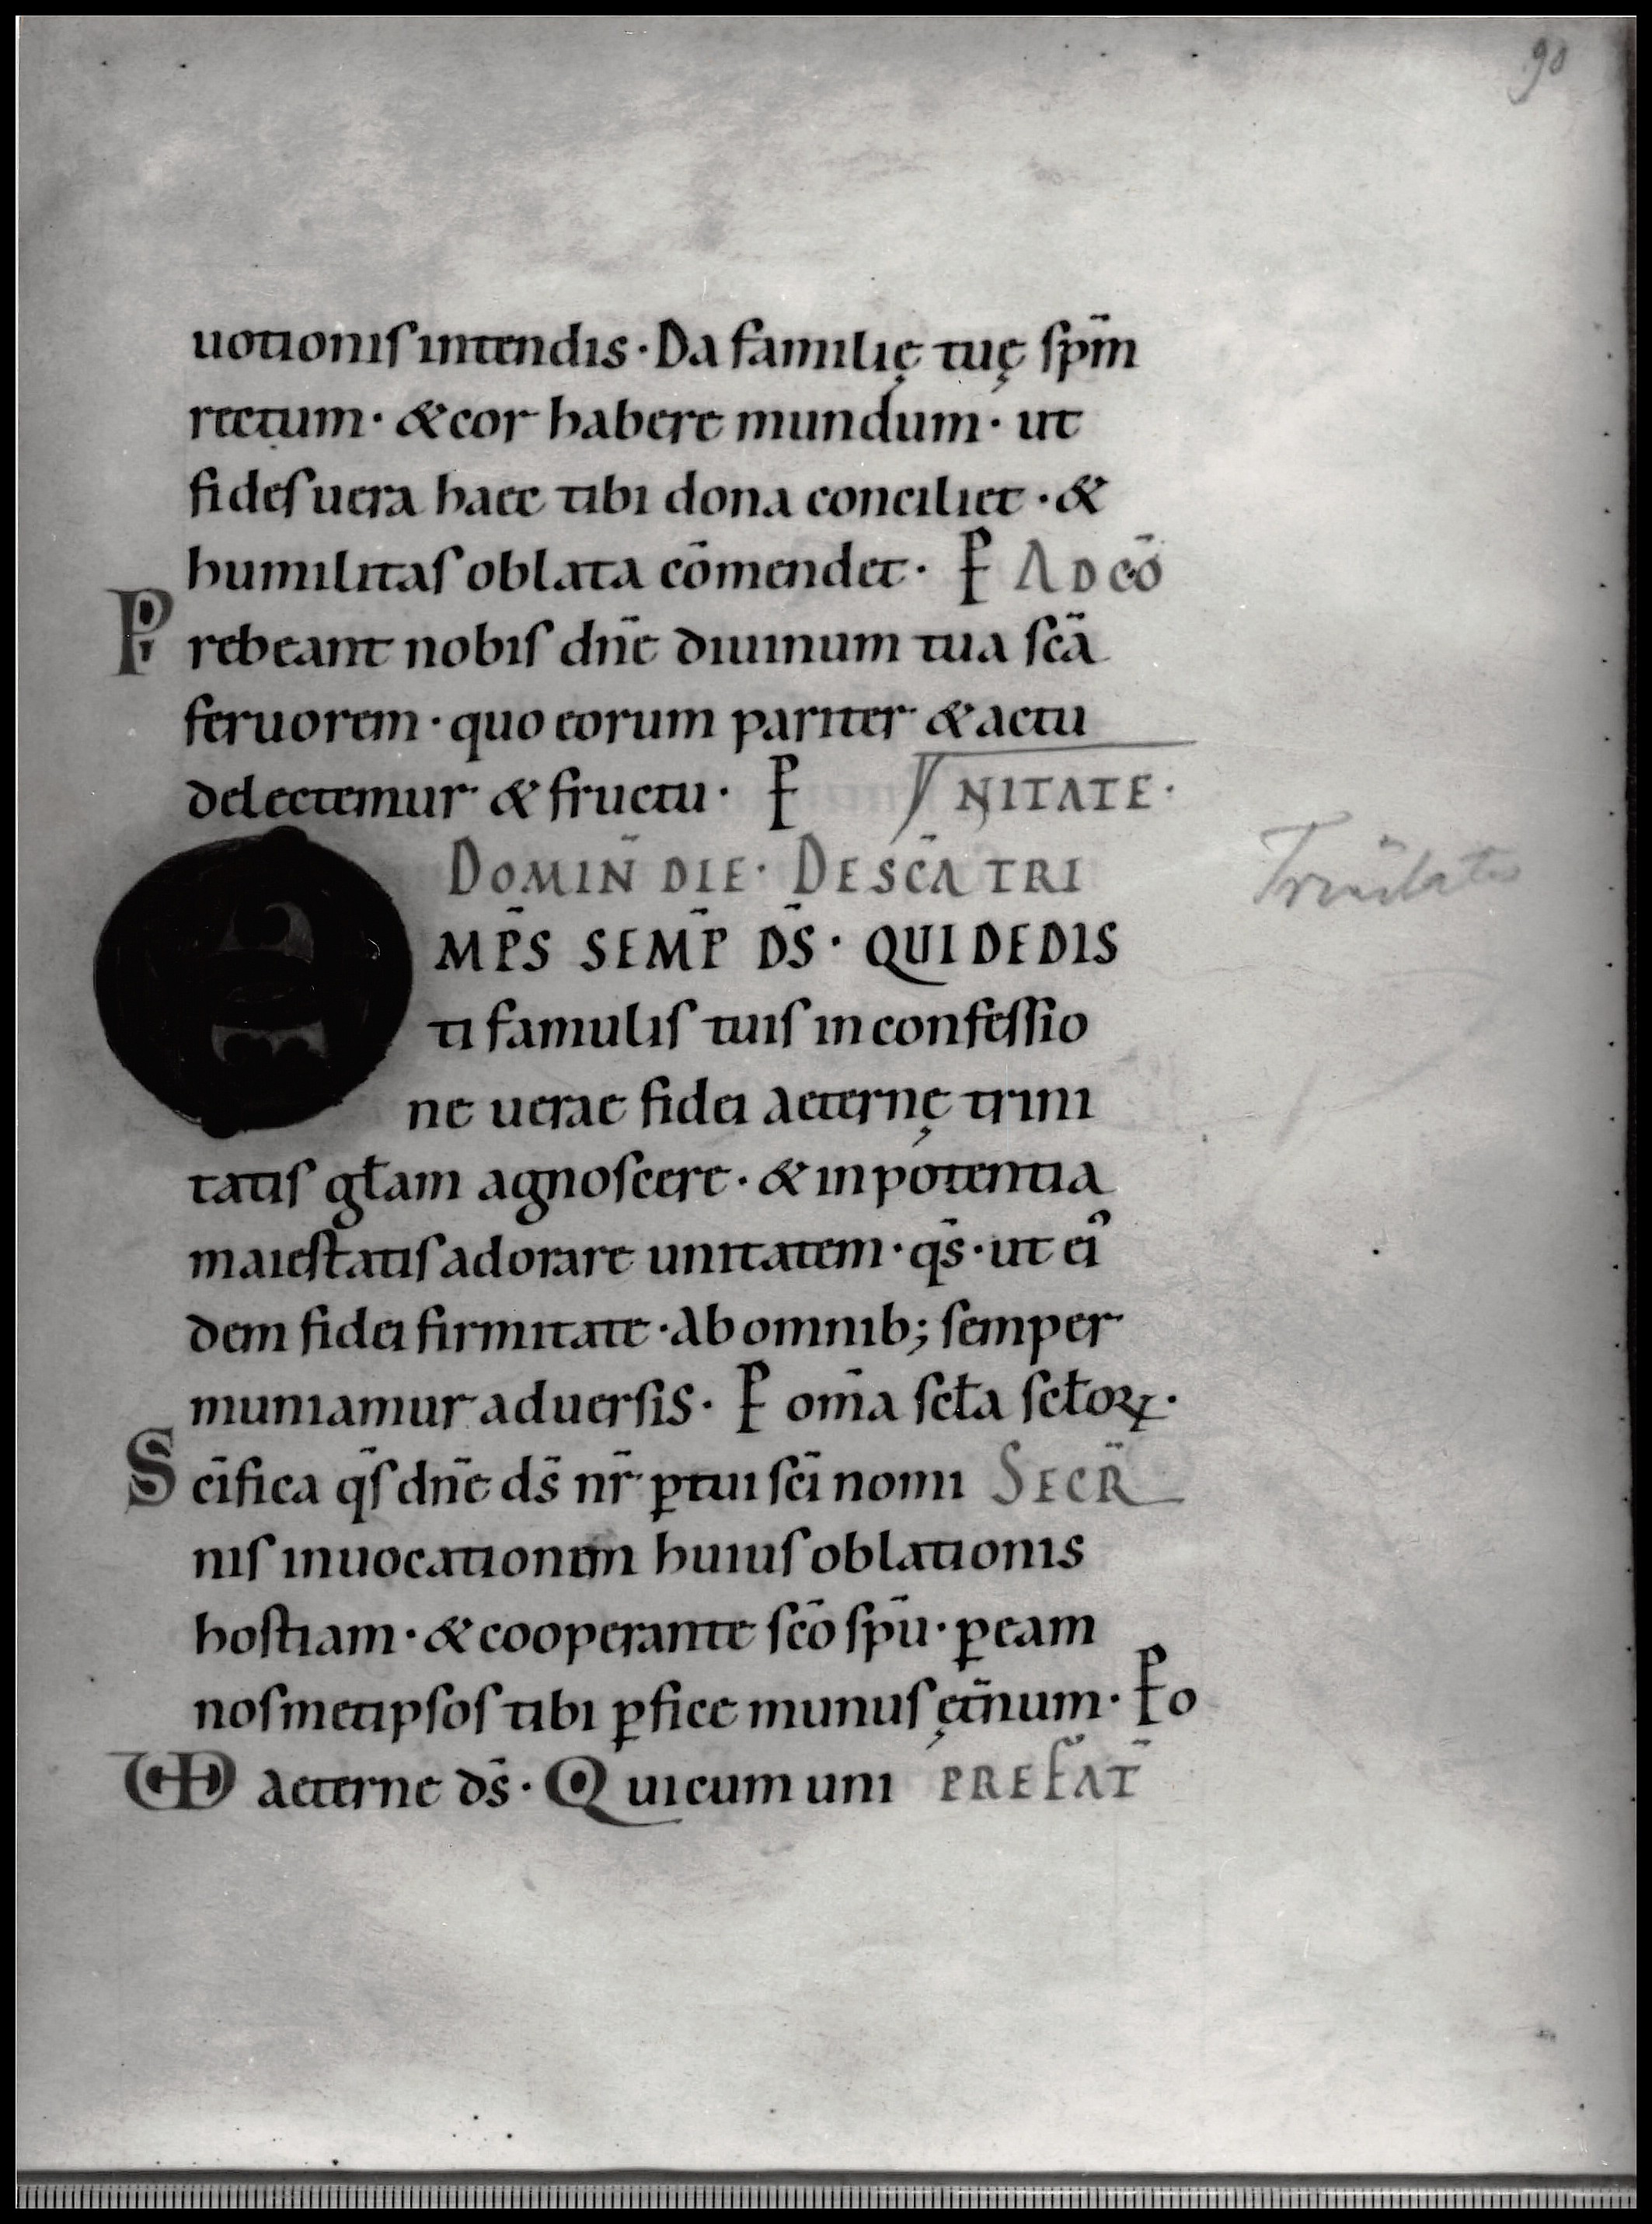 90
uotionis intendis · Da familię tuę sp̄m
rectum · & cor habere mundum · ut
fides uera haec tibi dona conciliet · &
humilitas oblata cōmendet · P AD CŌ
Prebeant nobis dn̄e diuinum tua sc̄a
feruorem · quo eorum pariter & actu
delectemur & fructu · P NITATE ·
DOMIN̄ DIE · DE SC̄A TRI
Trinitatis
MP̄S SEMP̄ DS̄ · QUI DEDIS
ti famulis tuis in confessio
ne uerae fidei aeternę trini
tatis gł̄am agnoscere · & in potentia
maiestatis adorare unitatem · qs̄ · ut ei
dem fidei firmitate · Ab omnib; semper
muniamur aduersis · P om̄a scł̄a scł̄oꝝ ·
Sc̄ifica qs̄ dn̄e ds̄ nr̄ ꝑ tui sc̄i nomi SECR̄
nis inuocationem huius oblationis
hostiam · & cooperante sc̄o sp̄u · ꝑ eam
nosmetipsos tibi ꝑfice munus ęt̄num · P o
VD aeterne ds̄ · Qui cum uni PREFAT̄